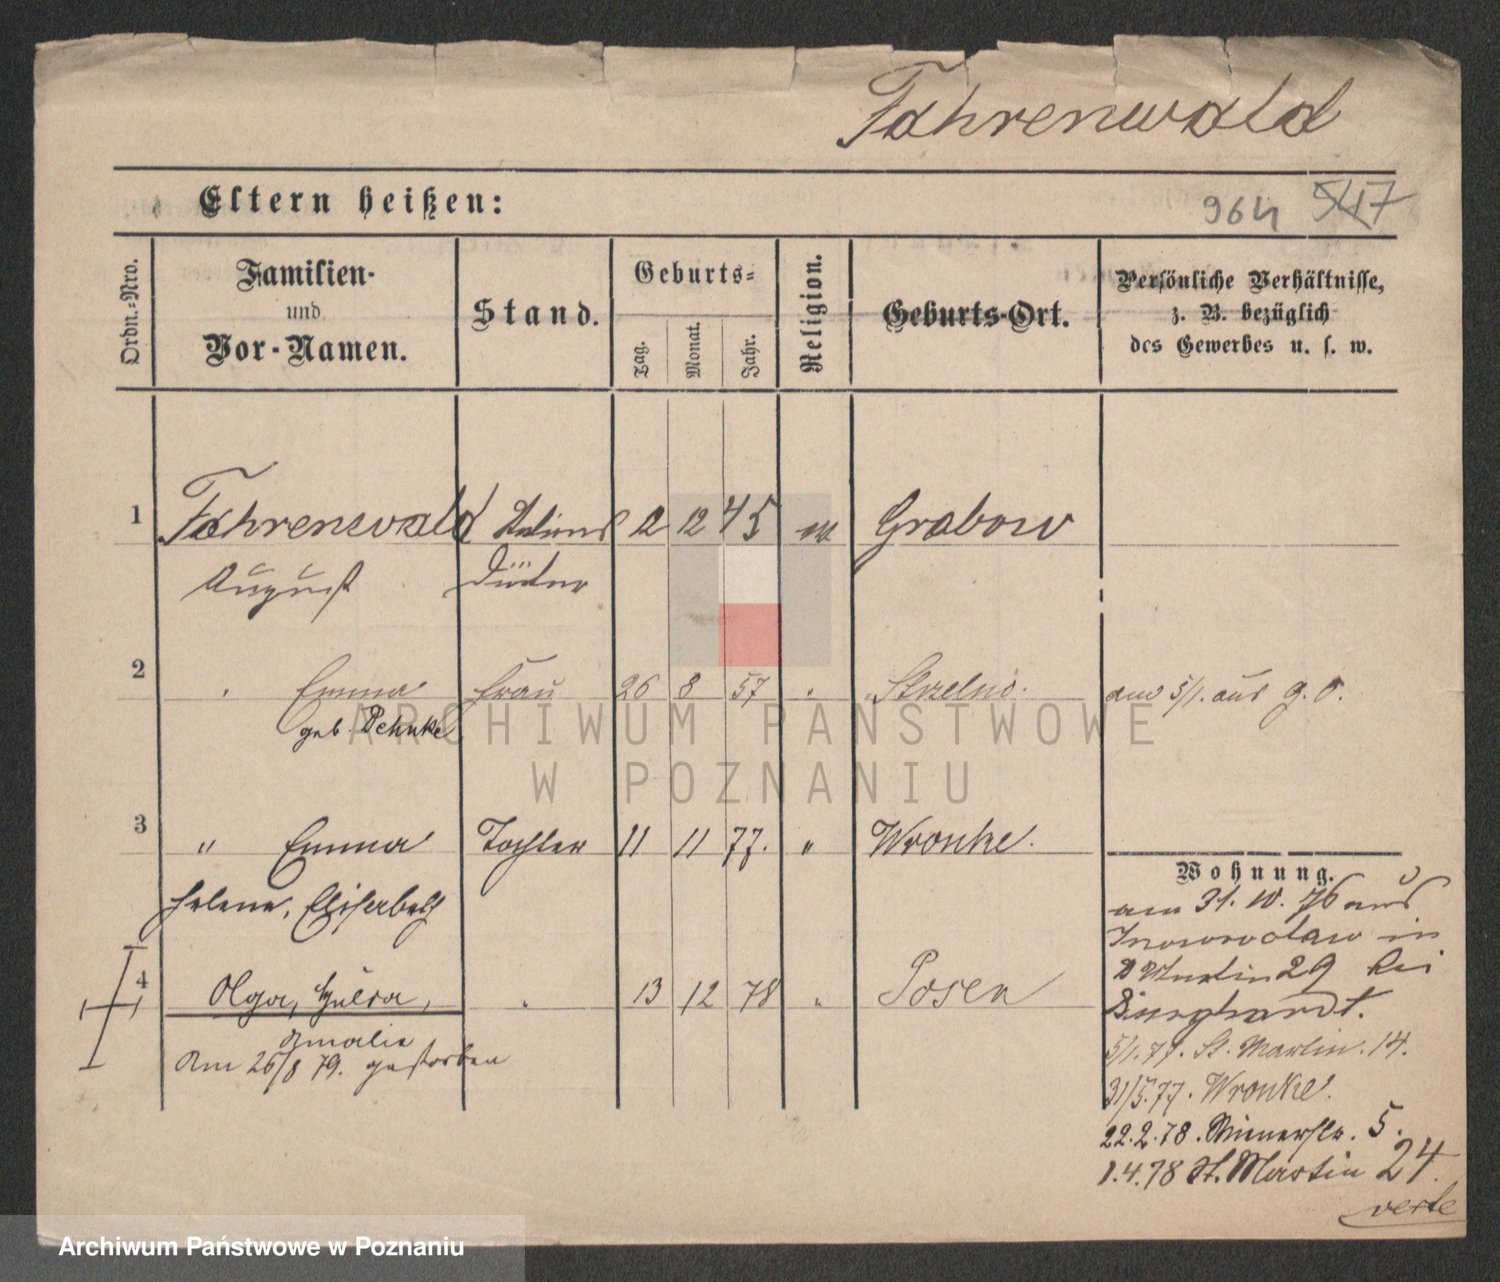 Fahrenwald
Eltern heißen:
964 517
Ordn.-Nro.
Familien-
und
Vor-Namen.
Stand.
Geburts-
Tag.
Monat.
Jahr.
Religion.
Geburts-Ort.
Persönliche Verhältnisse,
z. B. bezüglich
des Gewerbes u. s. w.
1 Fahrenwald 2 12 45 ev Grabow
August
2 " Emma Frau 26 8 57 " Strzelno. am 5/1. aus g. O.
geb. Dehnke
ARCHIWUM PAŃSTWOWE
W POZNANIU
3 " Emma Tochter 11 11 77. " Wronke.
Helene, Elisabeth
Wohnung.
am 31. 10. 76 aus
Inowrocław in
St Martin 29 bei
Burghardt.
5/1. 77. St. Martin. 14.
31/5. 77. Wronke.
22. 2. 78. 5.
1. 4. 78 St. Martin 24.
verte
4 Olga, " 13 12 78 " Posen
Amalie
Am 26/8 79. gestorben
Archiwum Państwowe w Poznaniu